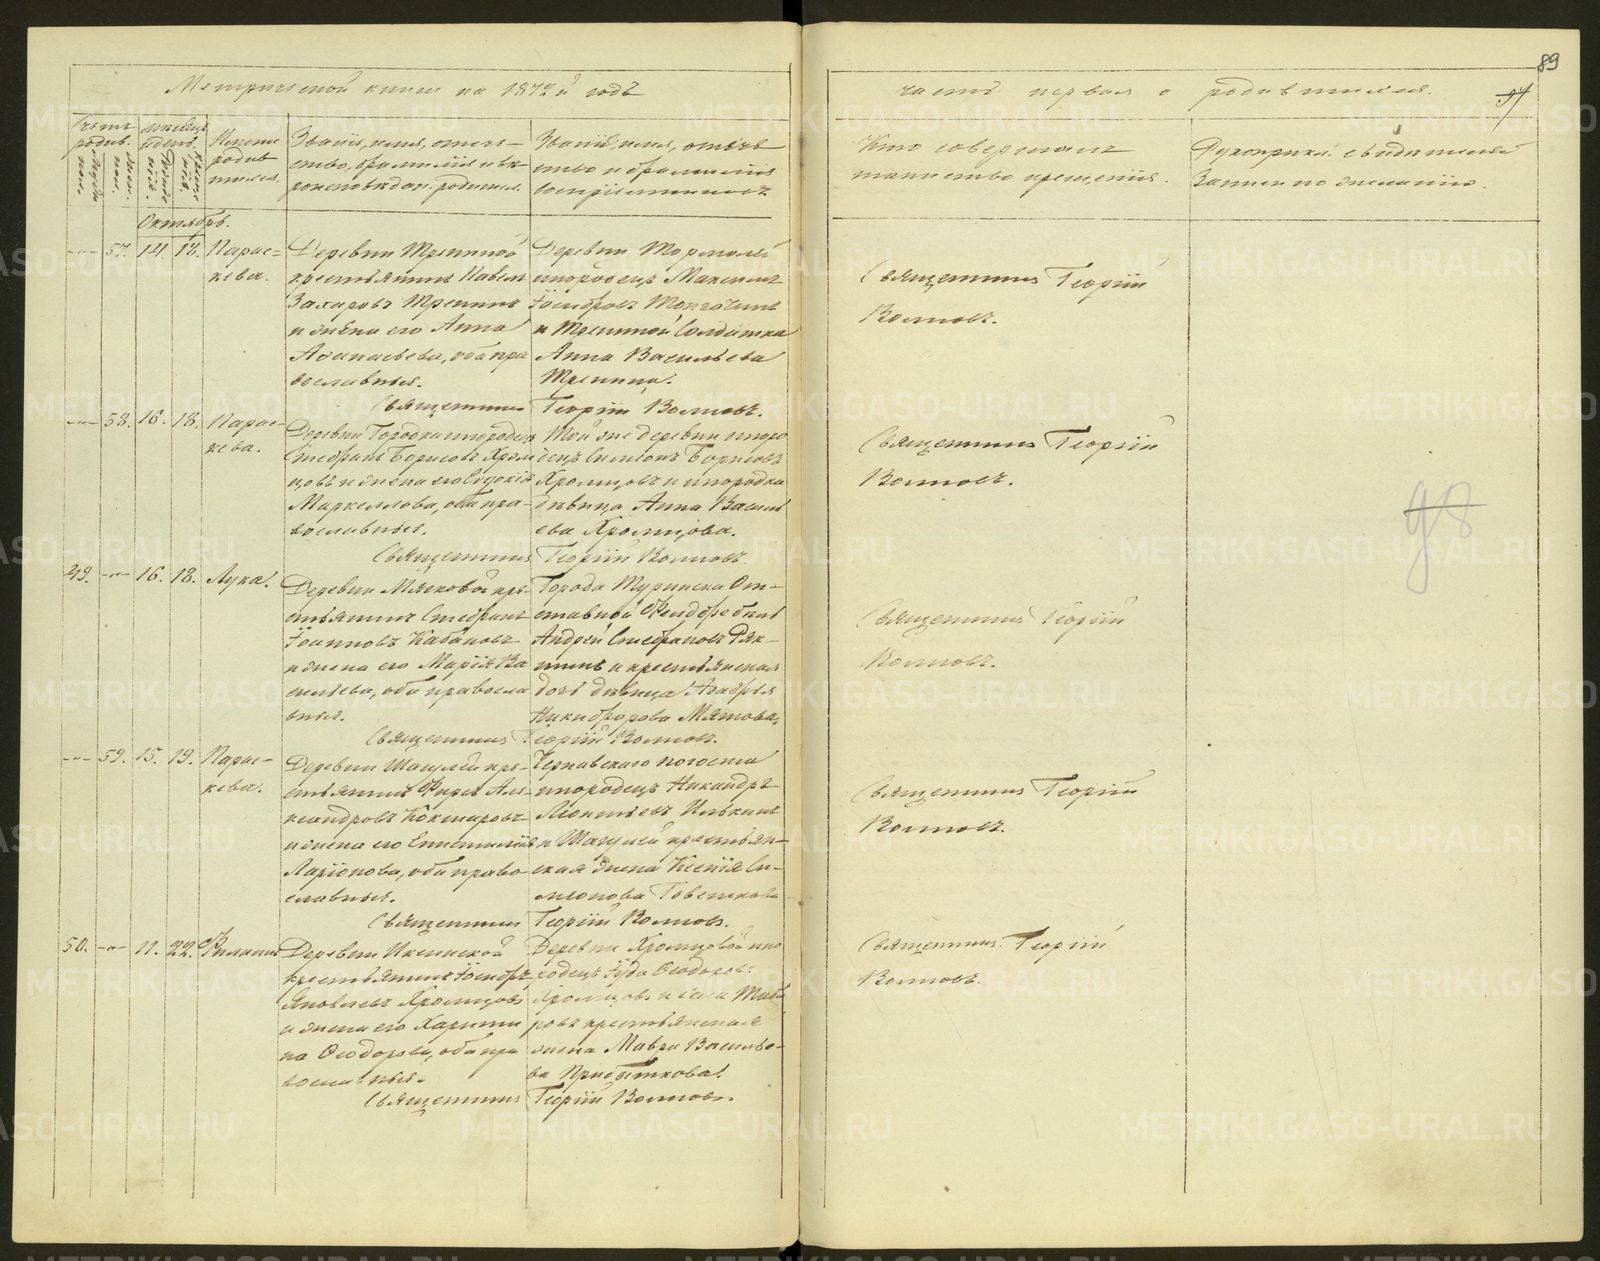 89
Метрической книги на 1872й годъ
часть первая о родившихся.
Счетъ родив.
Мужеск. пол.
Женск. пол.
Мѣсяцъ и день
рожденія.
крещенія.
Имена
родив
шихся.
Званіе, имя, отче-
ство, фамилія и вѣ-
роисповѣдан. родител.
Званіе, имя, отчест
тво и фамилія
воспріемниковъ
Кто совершалъ
таинство крещенія.
Рукоприкл. свидѣтелей
записи по желанію.
Октябрь.
57. 14. 18. Парас-
кева.
Деревни
крестьянинъ Павелъ
Захаровъ
и жена его Анна
Аѳанасьева, оба пра
вославныя.
Деревни
инородецъ Максимъ
Іосифовъ
и солдатка
Анна Васильева
Священникъ Георгій Волковъ.
Священникъ Георгій
Волковъ.
58. 16. 18. Парас-
кева.
Деревни Городка инородецъ
Стефанъ Борисовъ Хром
цовъ и жена его Евдокія
Маркеллова, оба пра-
вославныя.
Той же деревни иноро
децъ Симеонъ Борисовъ
Хромцовъ и инородка
дѣвица Анна Василь
ева Хромцова.
Священникъ Георгій Волковъ
Священникъ Георгій
Волковъ.
98
49. 16. 18. Лука.
Деревни Мяхковой кре-
стьянинъ Стефанъ
Іоанновъ Кабановъ
и жена его Марія Ва
сильева, оба правосла
вныя.
Города Туринска От-
ставной Фельдфебель
Андрей Стефановъ
и крестьянская
дочь дѣвица Агафья
Никифорова
Священникъ Георгій Волковъ.
Священникъ Георгій
Волковъ.
59. 15. 19. Парас-
кева.
Деревни кре-
стьянинъ Фирсъ Але-
ксандровъ Кокшаровъ
и жена его Епистимія
Ларіонова, оба право-
славныя.
Чернавскаго погоста
инородецъ Никандръ
Леонтьевъ
и крестьян-
ская жена Ксенія Си-
меонова
Священникъ Георгій Волковъ.
Священникъ Георгій
Волковъ.
50. 11. 22. Филаппъ
Деревни Икшинской
крестьянинъ Іосифъ
Яковлевъ Хромцовъ
и жена его Харити
на Ѳеодорова, оба пра
вославныя.
Деревни Хромцовой ино
родецъ Іуда Ѳеодоров.
Хромцовъ и села
ровъ крестьянская
жена Мавра Василье-
ва Прибыткова.
Священникъ Георгій Волковъ.
Священникъ Георгій
Волковъ.
METRIKI.GASO-URAL.RU